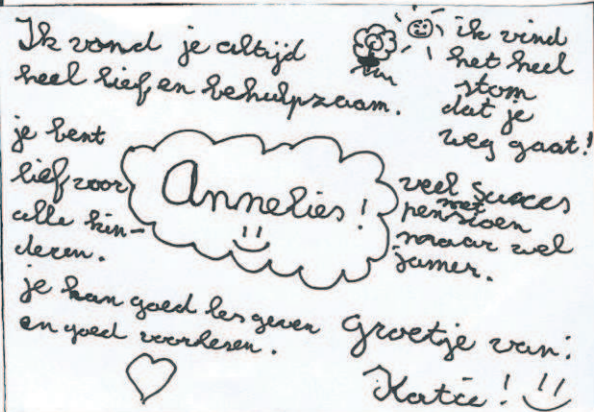 Ik vond je altijd
heel lief en behulpzaam.
ik vind
het heel
stom
dat je
weg gaat!
je bent
lief voor
alle kin-
deren.
Annelies!
veel succes
met
pensioen
maar wel
jamer.
je kan goed les geven
en goed voorlezen.
Groetje van:
Katie!